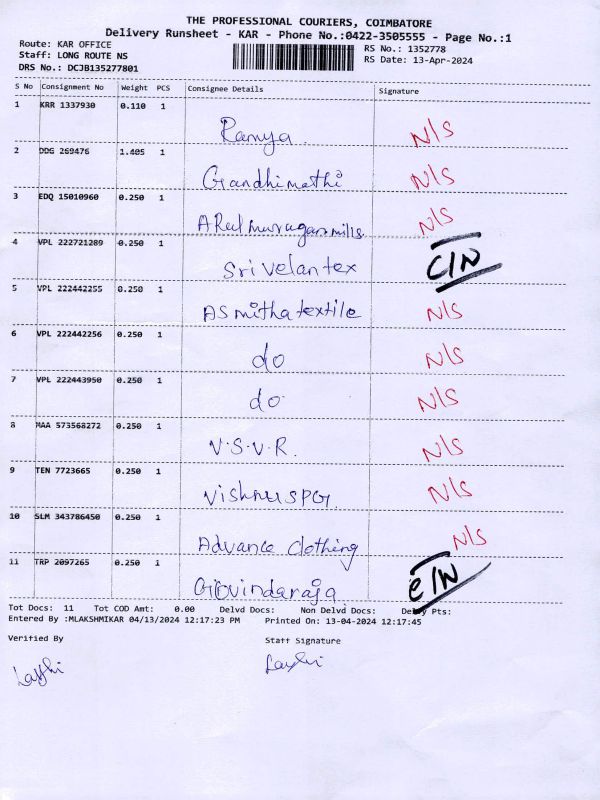 THE PROFESSIONAL COURIERS, COIMBATORE
Delivery Runsheet - KAR - Phone No.:0422-3505555 - Page No.:1
Route: KAR OFFICE RS No.: 1352778
Staff: LONG ROUTE NS RS Date: 13-Apr-2024
DRS No.: DCJB135277801
S No Consignment No Weight PCS Consignee Details Signature
1 KRR 1337930 0.110 1
Ramya N/S
2 DDG 269476 1.405 1
Gandhimathi N/S
3 EDQ 15010960 0.250 1
A Rul murugan mills N/S
4 VPL 222721289 0.250 1
Sri velan tex C/N
5 VPL 222442255 0.250 1
ASmitha textile N/S
6 VPL 222442256 0.250 1
do N/S
7 VPL 222443950 0.250 1
do N/S
8 MAA 573568272 0.250 1
V.S.V.R. N/S
9 TEN 7723665 0.250 1
Vishnu SPG N/S
10 SLM 343786450 0.250 1
Advance Clothing N/S
11 TRP 2097265 0.250 1
Govindaraja C/N
Tot Docs: 11 Tot COD Amt: 0.00 Delvd Docs: Non Delvd Docs: Delvy Pts:
Entered By :MLAKSHMIKAR 04/13/2024 12:17:23 PM Printed On: 13-04-2024 12:17:45
Verified By Staff Signature